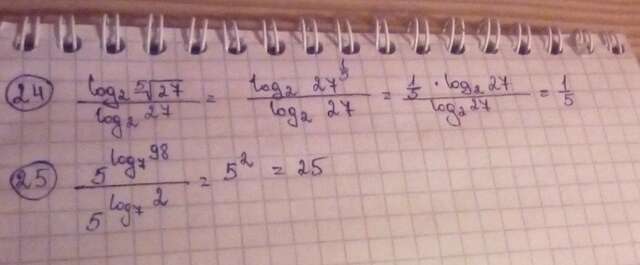 24 log₂ ⁵√27 / log₂ 27 = log₂ 27^(1/5) / log₂ 27 = 1/5 · log₂ 27 / log₂ 27 = 1/5
25 5^(log₇ 98) / 5^(log₇ 2) = 5² = 25